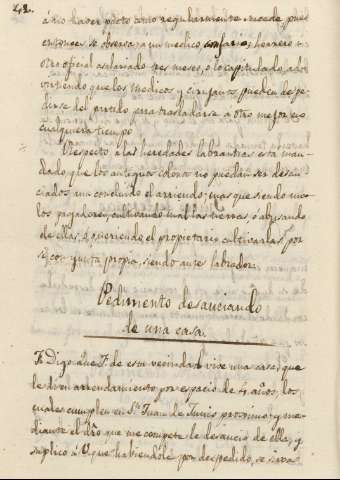 42.
á no haver pacto como regularmente sucede, pues
entonces se observa; a un medico boticario, herrero u
otro oficial asalariado tres meses, ó lo capitulado, ad-
virtiendo que los Medicos y cirujanos pueden despe-
dirse del partido para trasladarse a otro mejor en
cualquiera tiempo
Respecto a las heredades labrantias esta man-
dado que los antiguos colonos no puedan ser desau-
ciados, aun concluido el arriendo; mas que siendo ma-
los pagadores, cultivando mal las tierras, ó abusando
de ellas, ó queriendo el propietario cultivarlas por
si con yunta propia, siendo antes labrador.
Pedimento desauciando
de una casa.
F. Digo: que F. de esta vecindad vive una casa, que
le di en arrendamiento por espacio de 4 años, los
cuales cumplen en Sn. Juan de Junio proximo; y me-
diante el dro que me compete le desaucio de ella, y
suplico á V. que habiendole por despedido, se sirva